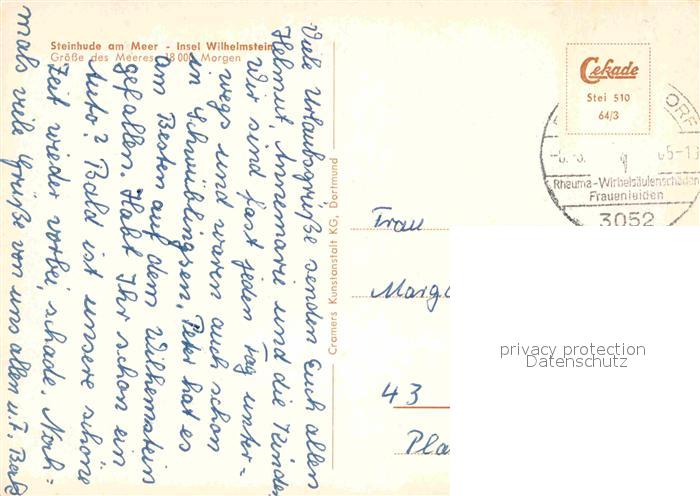 Steinhude am Meer - Insel Wilhelmstein
Größe des Meeres 18000 Morgen
Viele Urlaubsgrüße senden Euch allen
Helmut, Annemarie und die Kinder,
Wir sind fast jeden Tag unter=
wegs und waren auch schon
in Schwüblingsen, Peter hat es
am Besten auf dem Wilhelmstein
gefallen. Habt Ihr schon ein
Auto? Bald ist unsere schöne
Zeit wieder vorbei, schade. Noch=
mals viele Grüße von uns allen u. F.
Cramers Kunstanstalt KG, Dortmund
Cekade
Stei 510
64/3
ORF
-6.-8. 65-1
Rheuma-Wirbelsäulenschäden
Frauenleiden
3052
Frau
Marg
43
Pla
privacy protection
Datenschutz